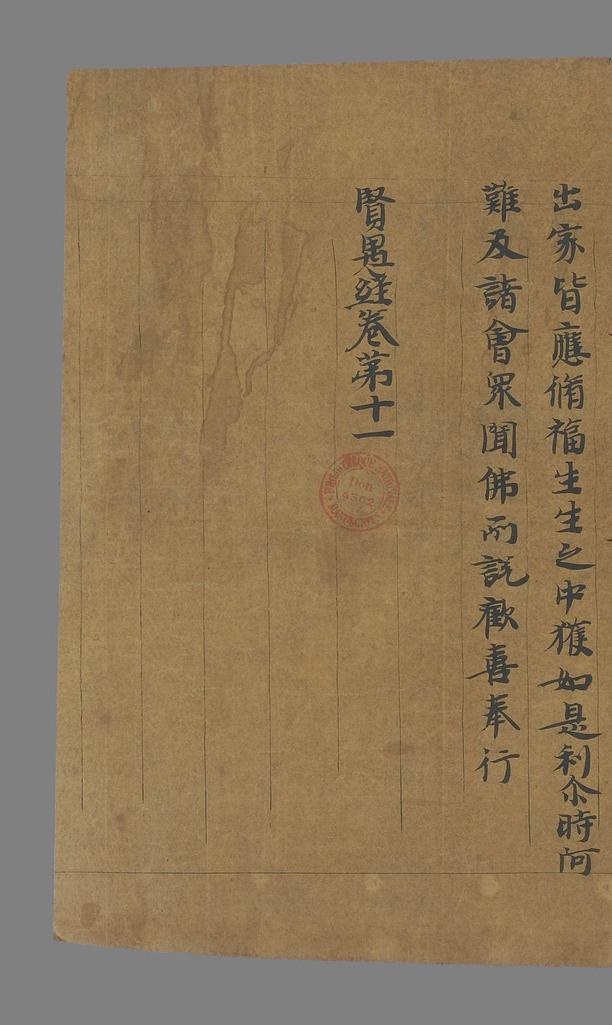 出家皆應脩福生生之中獲如是利尒時阿
難及諸會眾聞佛所説歡喜奉行
賢愚經卷第十一